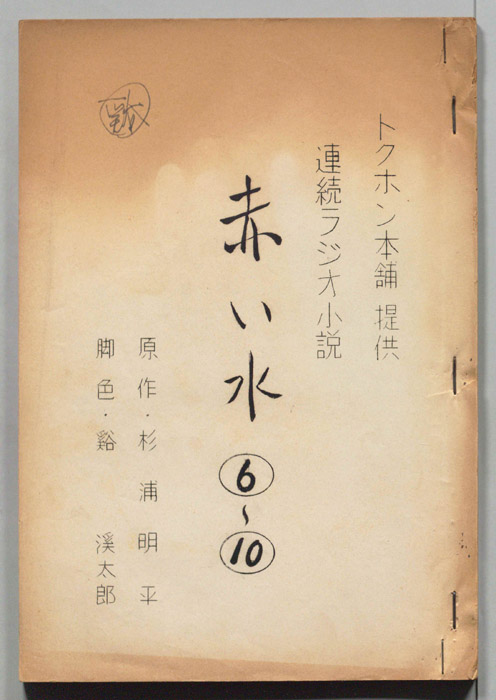 トクホン本舗 提供
連続ラジオ小説
赤い水 ⑥〜⑩
原作・杉浦明平
脚色・谿 渓太郎